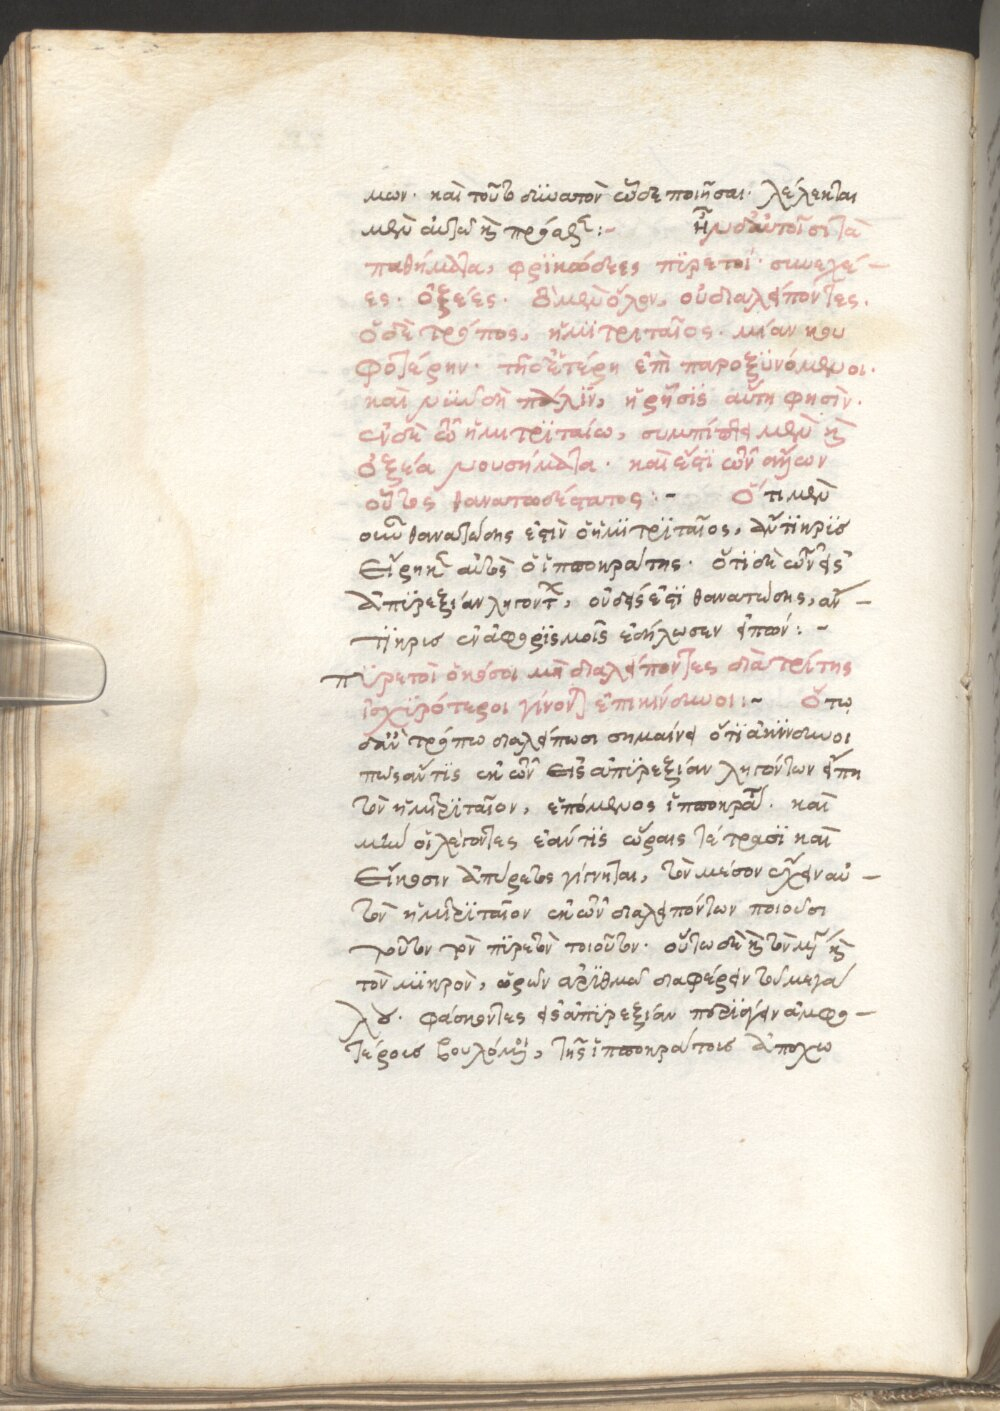 μων· καὶ τοῦτο δυνατὸν ὧδε ποιῆσαι· λέλεκται
μὲν αὐτῶ κατὰ πρόῤῥ :- Ἦν δ' αὐτοῖσι τὰ
παθήματα, φρικώδεες πυρετοί· συνεχέ-
ες· ὀξέες· τὸ μὲν ὅλον, οὐ διαλείποντες.
ὁ δὲ τρόπος, ἡμιτριταῖος· μίαν κου
φοτέρην· τῆ δ' ἑτέρη ἐπι παροξυνόμενοι·
καὶ νῦν δὴ πάλιν, ἡ ῥῆσις αὕτη φησὶν·
ἐν δὲ τῶ ἡμιτριταίω, συμπίπτει μὲν καὶ
ὀξέα νουσήματα· καὶ ἔστι τῶν ἄλλων
οὗτος θανατωδέστατος :- Ὅτι μὲν
οὖν θανατώδης ἐστὶν ὁ ἡμιτριταῖος, ἄντικρυς
εἴρηκεν αὐτὸς ὁ ἱπποκράτης· ὅτι δὲ τῶν εἰς
ἀπυρεξίαν ληγόντων, οὐδείς ἐστι θανατώδης, ἄν-
τικρις ἐν ἀφορισμοῖς ἐδήλωσεν εἰπών :-
πυρετοὶ ὁκόσοι μὴ διαλείποντες διὰ τρίτης
ἰσχυρότεροι γίνονται ἐπικίνδυνοι :- Ὅτω
δ' ἂν τρόπω διαλείπωσι σημαίνει ὅτι ἀκίνδυνοι
πῶς ἄν τις ἐκ τῶν εἰς ἀπυρεξίαν ληγόντων εἴπη
τὸν ἡμιτριταῖον, ἑπόμενος ἱπποκράτει· καὶ
μὴν οἱ λέγοντες ἐάν τις ὥραις τέτρασι καὶ
εἴκοσιν ἀπύρετος γίγνηται, τὸν μέσον ἔχειν αὐ-
τὸν ἡμιτριταῖον ἐκ τῶν διαλειπόντων ποιοῦσι
τοῦτον τὸν πυρετὸν τοιοῦτον· οὕτω δὲ καὶ τὸν μὲν καὶ
τὸν μικρὸν, ὡρῶν ἀριθμῶ διαφέρειν τοῦ μεγά
λου· φάσκοντες εἰς ἀπυρεξίαν παραγίγνειν ἀμφο-
τέροις βουλόμενοι, τῆς ἱπποκράτους ἀποχω